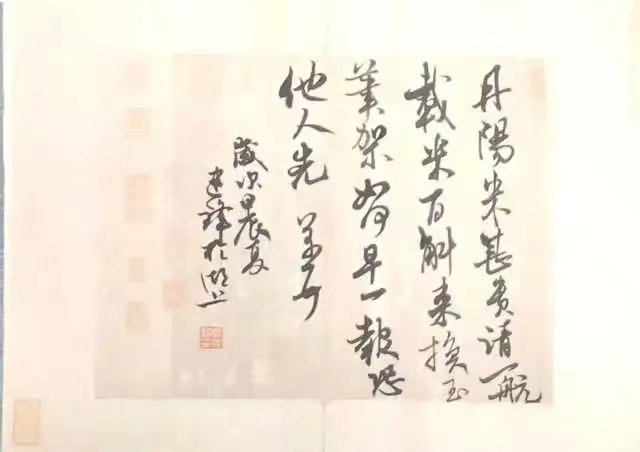 丹陽米甚貴請一航
載米百斛來換玉
筆架如何早一報恐
他人先
歲次甲辰夏
於湖上